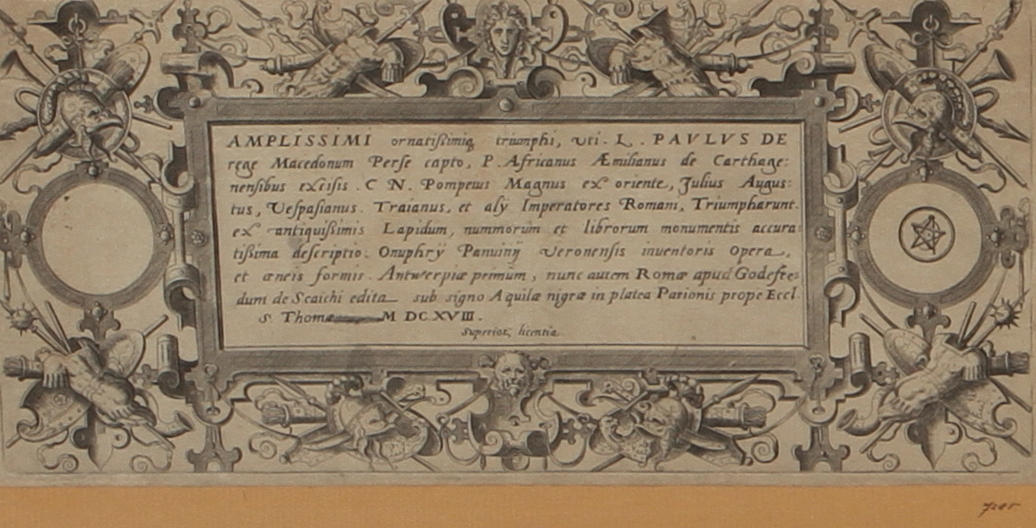 AMPLISSIMI ornatissimiq triumphi, uti. L. PAVLVS DE
rege Macedonum Perse capto, P. Africanus Æmilianus de Carthage:
nensibus excisis. C N. Pompeius Magnus ex oriente, Julius Augus:
tus, Vespasianus. Traianus, et alÿ Imperatores Romani, Triumpharunt.
ex antiquissimis Lapidum, nummorum et librorum monumentis accura:
tissima descriptio: Onuphrÿ Panuinÿ Veronensis inventoris Opera,
et æneis formis. Antwerpiæ primum, nunc autem Romæ apud Godefre:
dum de Scaichi edita sub signo Aquilæ nigræ in platea Parionis prope Eccl.
S. Thomæ M DC XVIII.
Superior, licentia